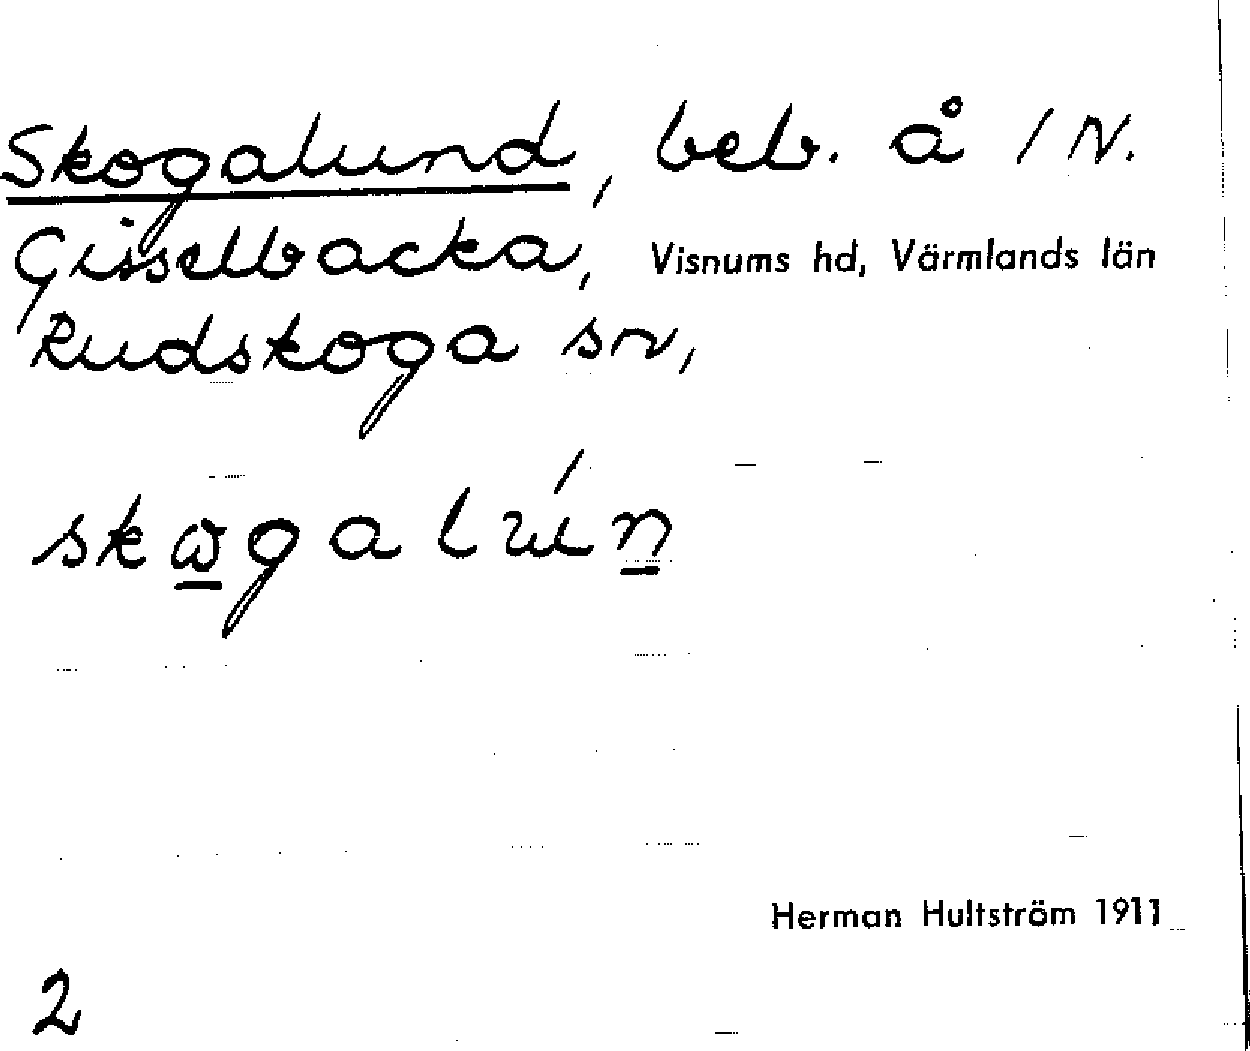 Skogalund, beb. å 1 N.
Gisselbacka, Visnums hd, Värmlands län
Rudskoga sn,
Herman Hultström 1911
2